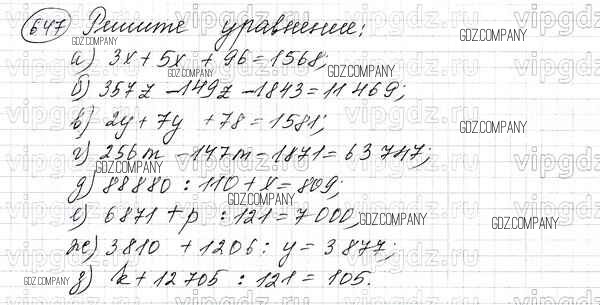 647 Решите уравнение:
а) 3x + 5x + 96 = 1568;
б) 357z - 149z - 1843 = 11 469;
в) 2y + 7y + 78 = 1581;
г) 256m - 147m - 1871 = 63 747;
д) 88880 : 110 + x = 809;
е) 6871 + p : 121 = 7 000;
ж) 3810 + 1206 : y = 3877;
з) k + 12 705 : 121 = 105.
GDZ.COMPANY
vipgdz.ru